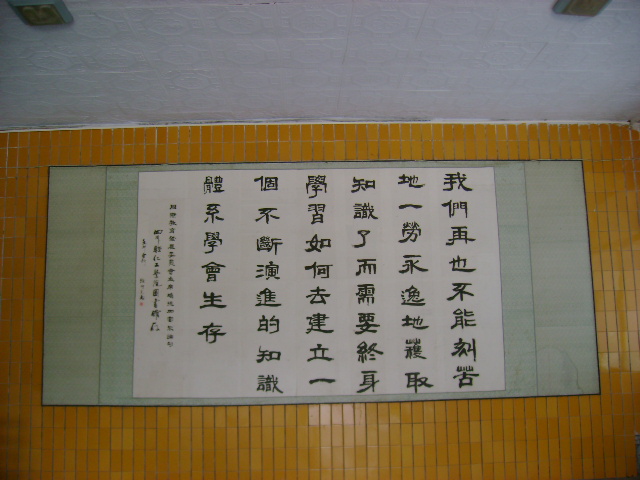 我們再也不能刻苦
地一勞永逸地獲取
知識了而需要終身
學習如何去建立一
個不斷演進的知識
體系學會生存